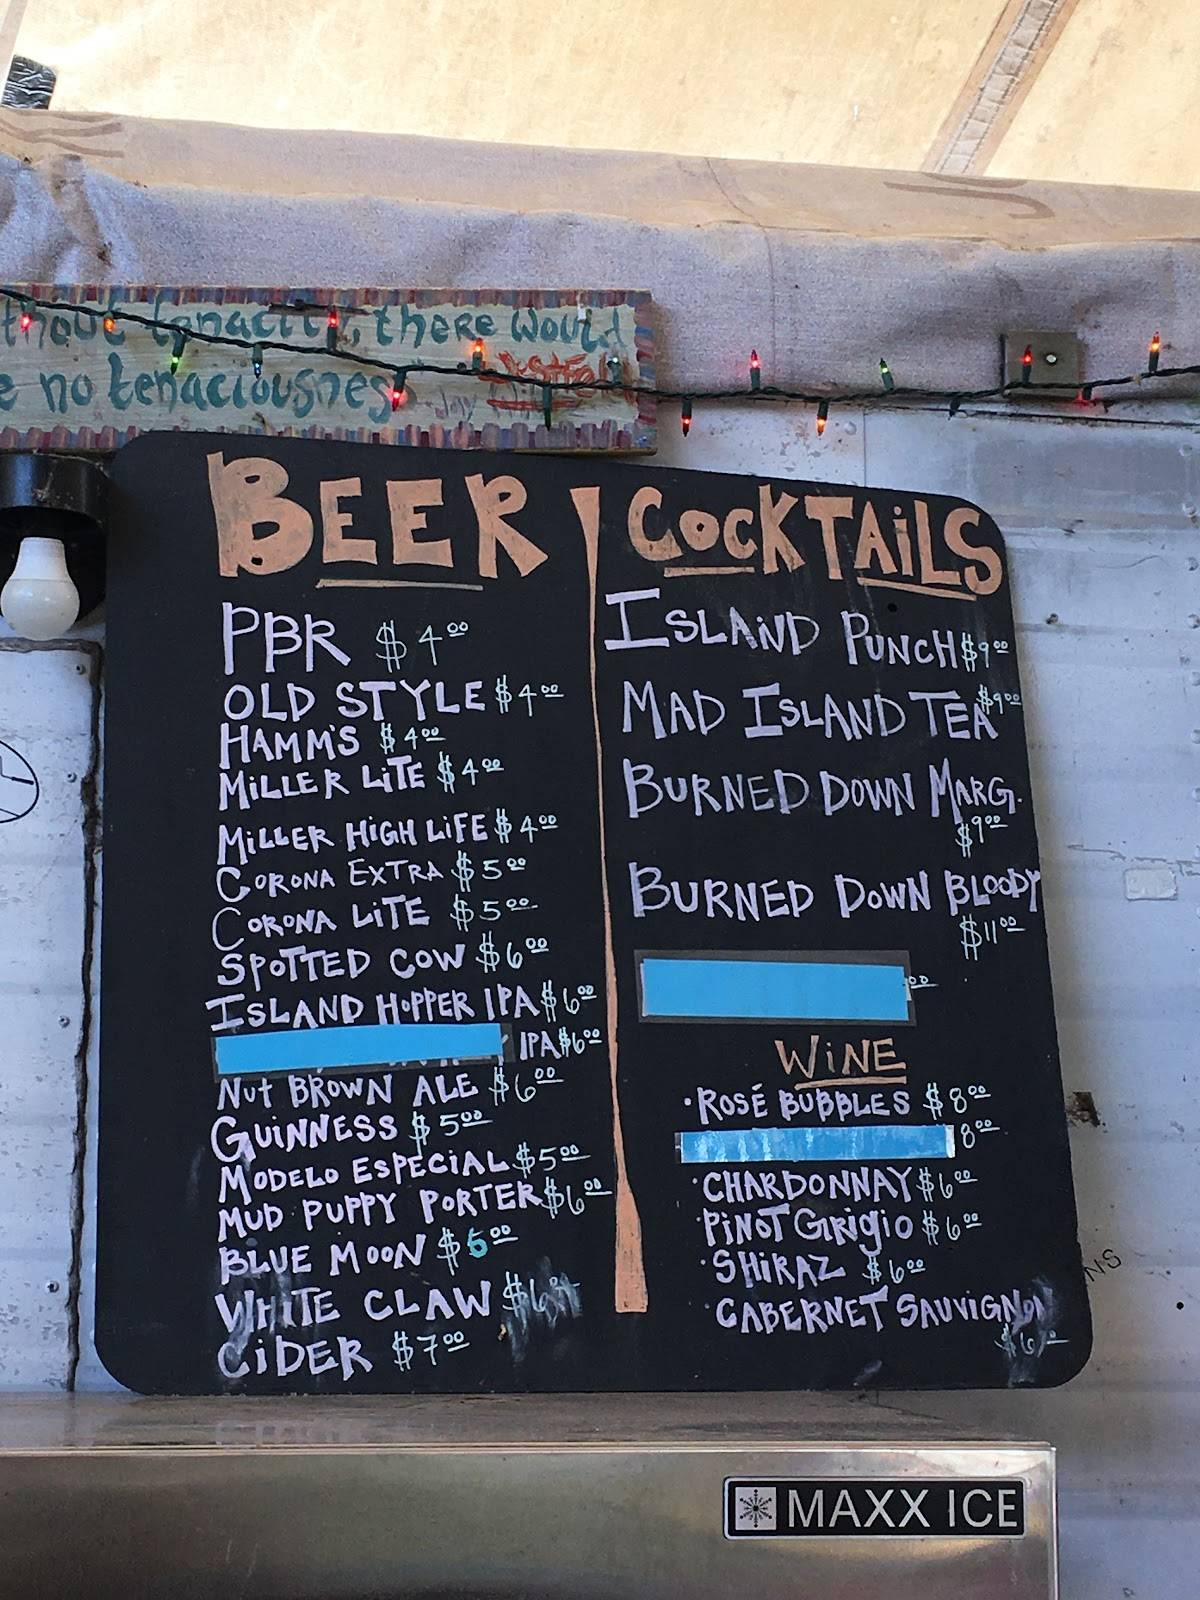 thout tenacity, there would
e no tenaciousness
BEER
PBR $4.00
OLD STYLE $4.00
HAMM'S $4.00
MiLLER LiTE $4.00
MiLLER HiGH LiFE $4.00
CORONA EXTRA $5.00
CORONA LiTE $5.00
SPOTTED COW $6.00
ISLAND HOPPER IPA $6.00
IPA $6.00
NUT BROWN ALE $6.00
GUiNNESS $5.00
MODELO ESPECiAL $5.00
MUD PUPPY PORTER $6.00
BLUE MOON $6.00
WHITE CLAW $6.00
CiDER $7.00
COCKTAiLS
ISLAND PUNCH $9.00
MAD ISLAND TEA $9.00
BURNED DOWN MARG. $9.00
BURNED DOWN BLOODY
$11.00
WiNE
·ROSÉ BUBBLES $8.00
8.00
·CHARDONNAY $6.00
·PiNOT Grigio $6.00
·SHiRAZ $6.00
·CABERNET SAUViGNON
$6.00
NS
MAXX ICE